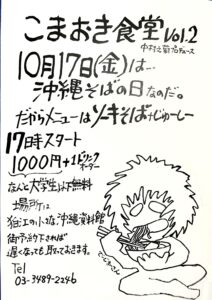 こまおき食堂 Vol.2
10月17日(金)は…
沖縄そばの日なのだ。
だからメニューはソーキそば+じゅーしー
17時スタート
1000円+1ドリンクオーダー
なんと大学生以下無料
場所は
狛江の小さな沖縄資料館
御予約下されば
遅くなっても取っておきます。
Tel
03-3489-2246